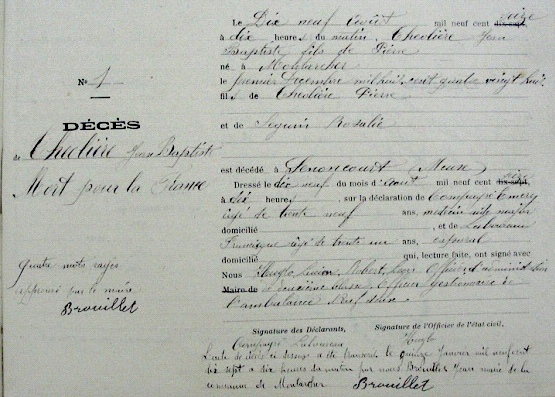 Nº 1
DÉCÈS
de Cheolière Jean Baptiste
Mort pour la France
Quatre mots rayés
approuvés par le maire
Brouillet
Le Dix neuf Août mil neuf cent dix-sept seize
à dix heures du matin, Cheolière Jean
Baptiste fils de Pierre
né à Montarcher
le premier Décembre mil huit cent quatre vingt huit
fils de Cheolière Pierre
et de Seguin Rosalie
est décédé à Senoncourt (Meuse)
Dressé le dix neuf du mois d'août mil neuf cent dix-sept, seize
à dix heures, sur la déclaration de Campagné
âgé de trente neuf ans, médecin aide major
domicilié , et de Laboureau
Francisque âgé de trente un ans, caporal
domicilié qui, lecture faite, ont signé avec
Nous Huglo, Lucien, Robert, officier d'administration
Maire de deuxième classe, officier gestionnaire de
l'ambulance
Signature des Déclarants, Signature de l'Officier de l'état civil,
Campagné Laboureau Huglo
L'acte de décès ci dessus a été transcrit le quinze Janvier mil neuf cent
dix sept à dix heures du matin par nous Brouillet Jean maire de la
commune de Montarcher Brouillet